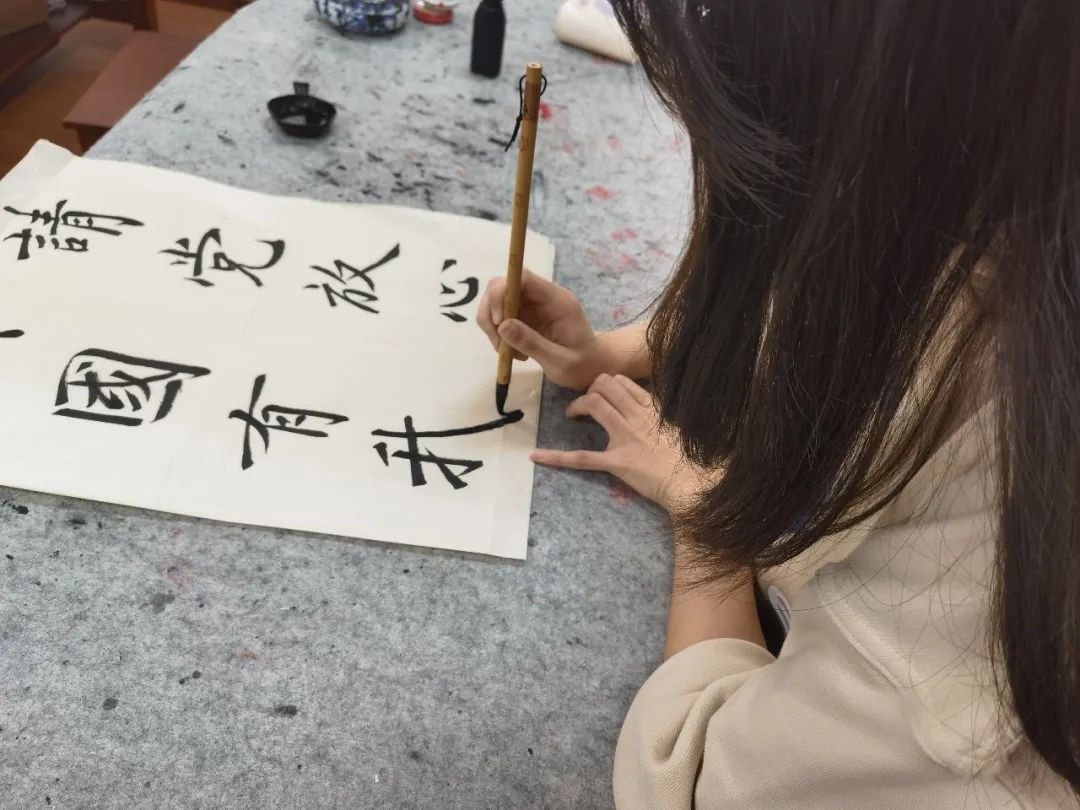 請党放心
國有我